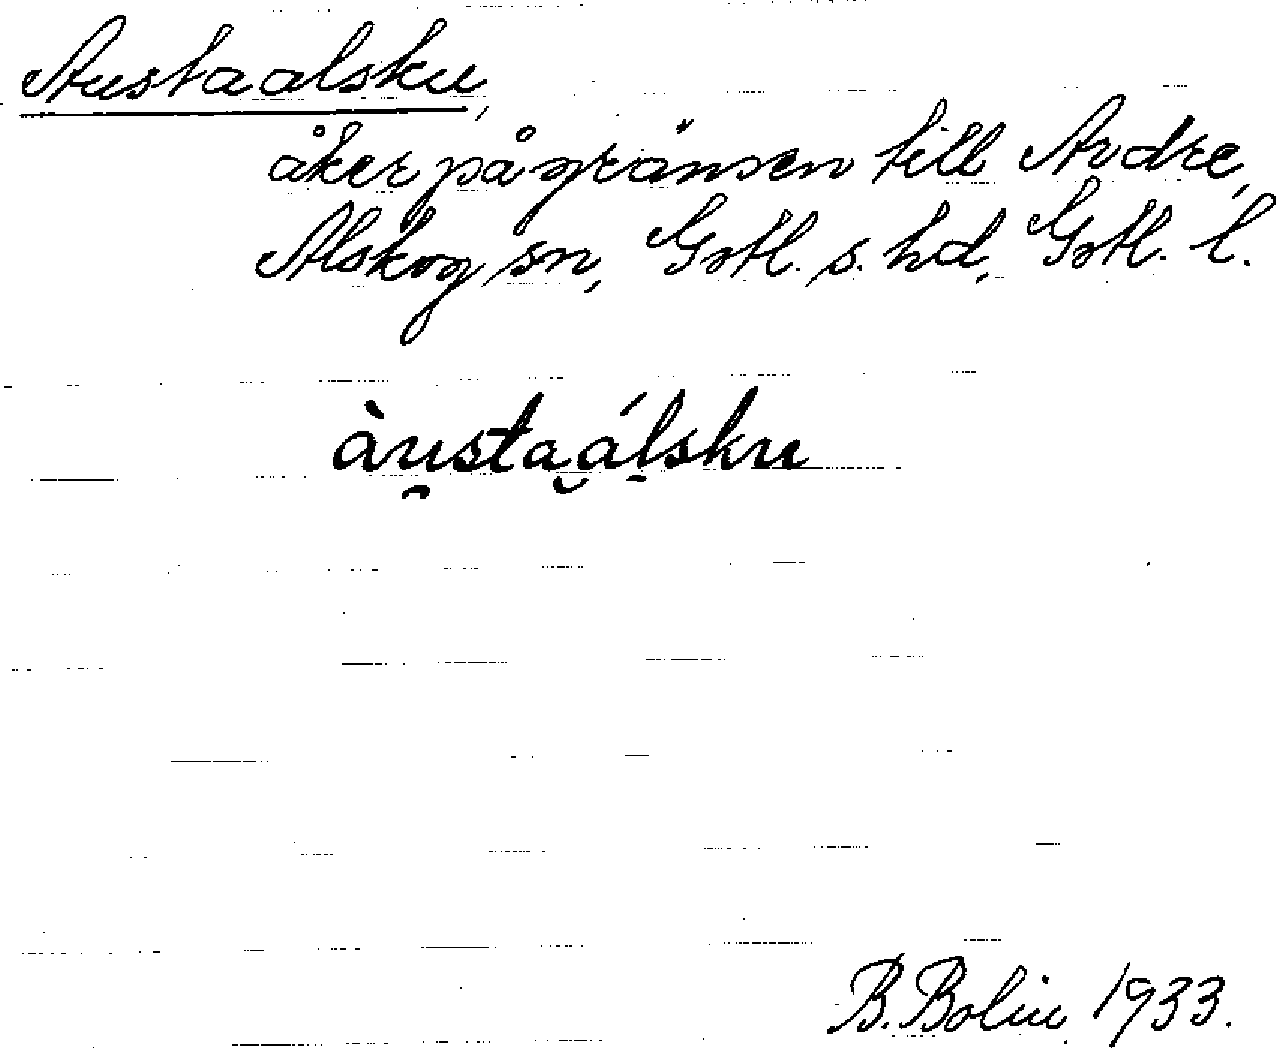 Austaalsku,
åker på gränsen till Ardre,
Alskog sn, Gotl. s. hd, Gotl. l.
àu̯staa̯ál̯sku
B. Bolin 1933.